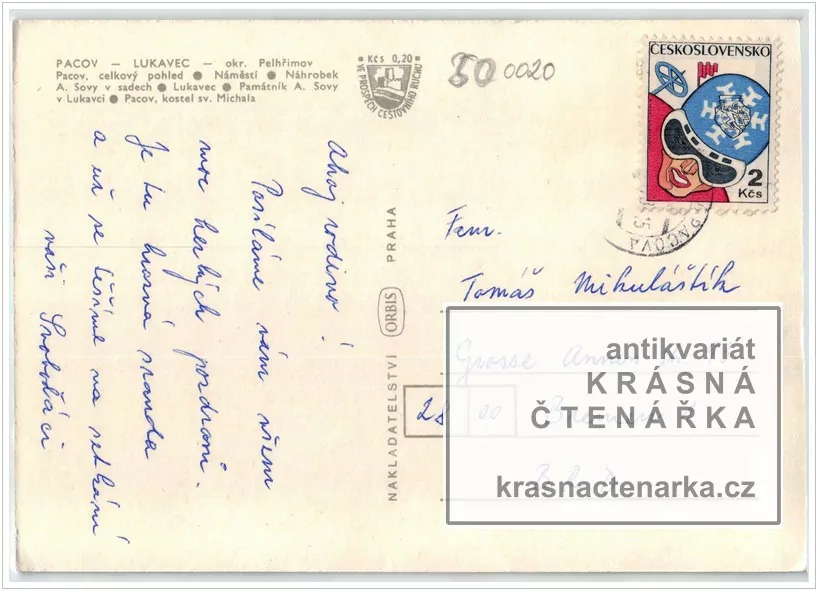 PACOV — LUKAVEC — okr. Pelhřimov
Pacov, celkový pohled ● Náměstí ● Náhrobek
A. Sovy v sadech ● Lukavec ● Památník A. Sovy
v Lukavci ● Pacov, kostel sv. Michala
Kčs 0,20
VE PROSPĚCH CESTOVNÍHO RUCHU
50 0020
ČESKOSLOVENSKO
2
Kčs
Ahoj rodino!
Posíláme vám všem
moc hezkých pozdravů.
Je tu hrozná sranda
a už se těšíme na setkání
vaši Svoboďáci
NAKLADATELSTVÍ ORBIS PRAHA
Fam.
Tomáš Mikuláštík
Grosse
28 00
antikvariát
KRÁSNÁ
ČTENÁŘKA
krasnactenarka.cz